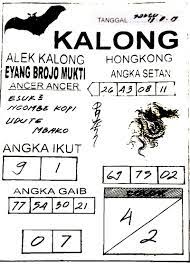 TANGGAL
KALONG
ALEK KALONG
HONGKONG
EYANG BROJO MUKTI
ANGKA SETAN
ANCER ANCER
26 43 08 11
ESUK2
NGOMBE KOPI
UDUTE
MBAKO
ANGKA IKUT
9 1
69 75 02
ANGKA GAIB
77 54 30 21
4
2
0 7